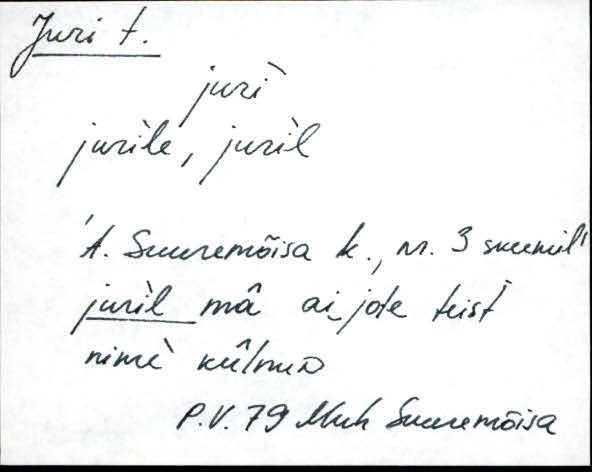 Juri t.
juri`
juri`le, juri`l
A. Suuremõisa k., nr. 3 suumil
juri`l mâ ai‿jole teist
nime`
P.V. 79 Muh Suuremõisa